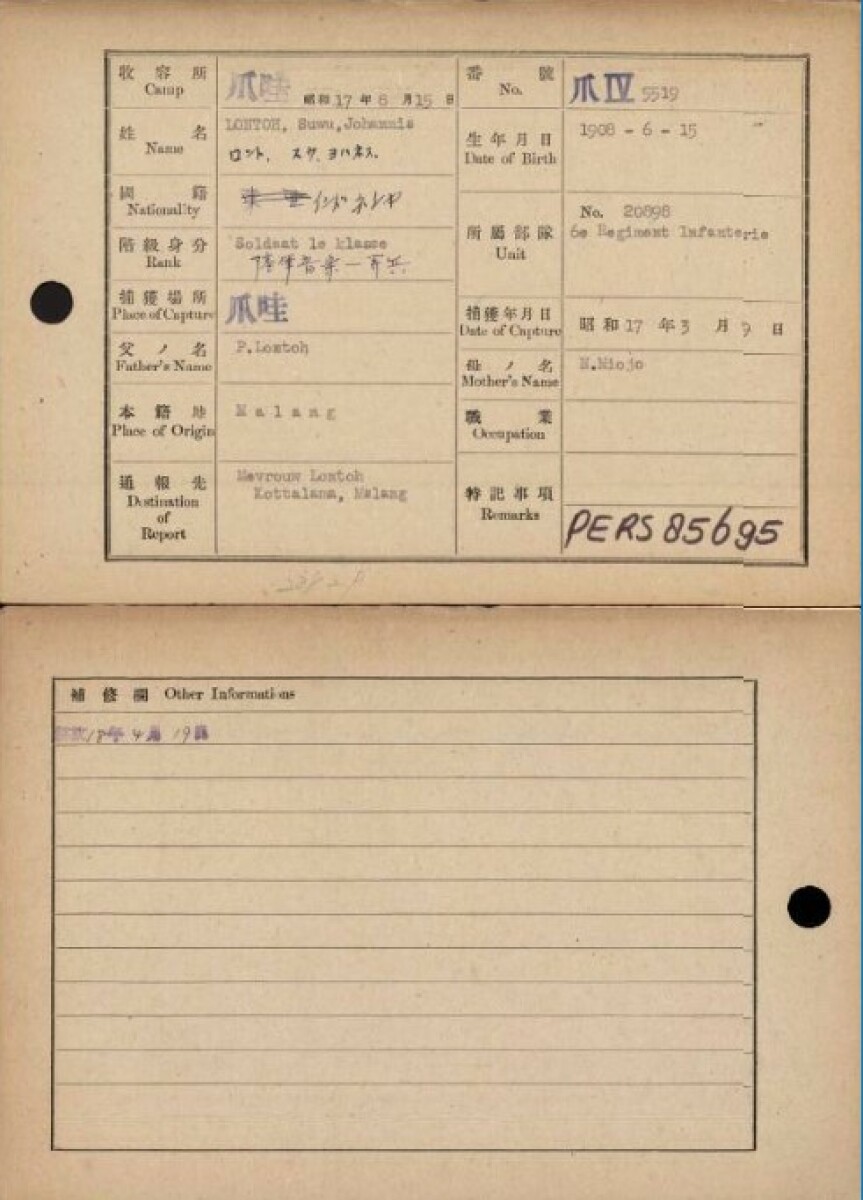 收容所
Camp
爪哇
昭和17年8月15日
番號
No.
爪 IV 5519
姓名
Name
LONTOH, Suwu,Johannis
ロント、スウ、ヨハネス.
生年月日
Date of Birth
1908 - 6 - 15
國籍
Nationality
インドネシヤ
所屬部隊
Unit
No. 20898
6e Regiment Infanterie
階級身分
Rank
Soldaat 1e klasse
陸軍
捕獲場所
Place of Capture
爪哇
捕獲年月日
Date of Capture
昭和17年3月9日
父ノ名
Father's Name
P.Lontoh
母ノ名
Mother's Name
N.Miojo
本籍地
Place of Origin
Malang
職業
Occupation
通報先
Destination
of
Report
Mevrouw Lontoh
Kottalama, Malang
特記事項
Remarks
PERS 85695
補修欄 Other Informations
18年4月19日